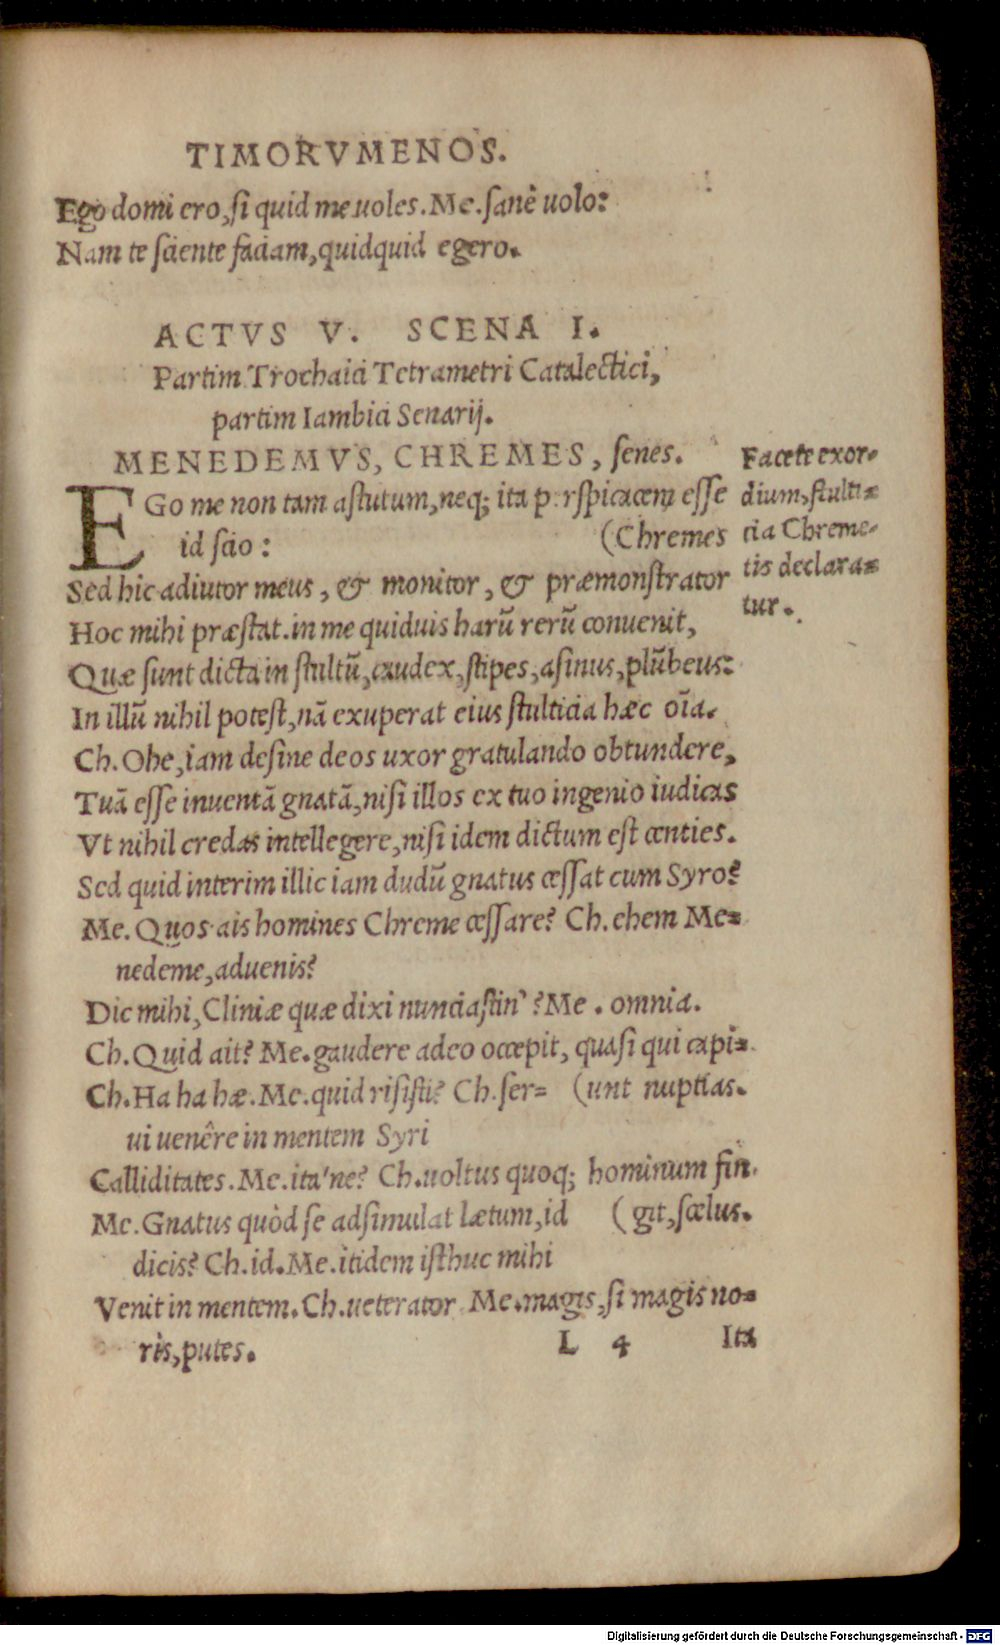 TIMORVMENOS.
Ego domi ero, si quid me uoles. Me. sanè uolo:
Nam te sciente faciam, quidquid egero.
ACTVS V. SCENA I.
Partim Trochaici Tetrametri Catalectici,
partim Iambici Senarij.
MENEDEMVS, CHREMES, senes.
EGo me non tam astutum, neq; ita p rspicacem esse
id scio: (Chremes
Sed hic adiutor meus, & monitor, & præmonstrator
Hoc mihi præstat. in me quiduis harū rerū conuenit,
Quæ sunt dicta in stultū, caudex, stipes, asinus, plūbeus:
In illū nihil potest, nā exuperat eius stulticia hæc oīa.
Ch. Ohe, iam desine deos uxor gratulando obtundere,
Tuā esse inuentā gnatā, nisi illos ex tuo ingenio iudicas
Vt nihil credas intellegere, nisi idem dictum est centies.
Sed quid interim illic iam dudū gnatus cessat cum Syro?
Me. Quos ais homines Chreme cessare? Ch. ehem Me=
nedeme, aduenis?
Dic mihi, Cliniæ quæ dixi nunciastin'? Me. omnia.
Ch. Quid ait? Me. gaudere adeo occepit, quasi qui capi=
Ch. Ha ha hæ. Me. quid risisti? Ch. ser= (unt nuptias.
ui uenêre in mentem Syri
Calliditates. Me. ita'ne? Ch. uoltus quoq; hominum fin.
Me. Gnatus quòd se adsimulat lætum, id (git, scelus.
dicis? Ch. id. Me. itidem isthuc mihi
Venit in mentem. Ch. ueterator Me. magis, si magis no=
ris, putes.
L 4 Ita
Facete exor=
dium, stulti=
cia Chreme=
tis declara=
tur.
Digitalisierung gefördert durch die Deutsche Forschungsgemeinschaft - DFG